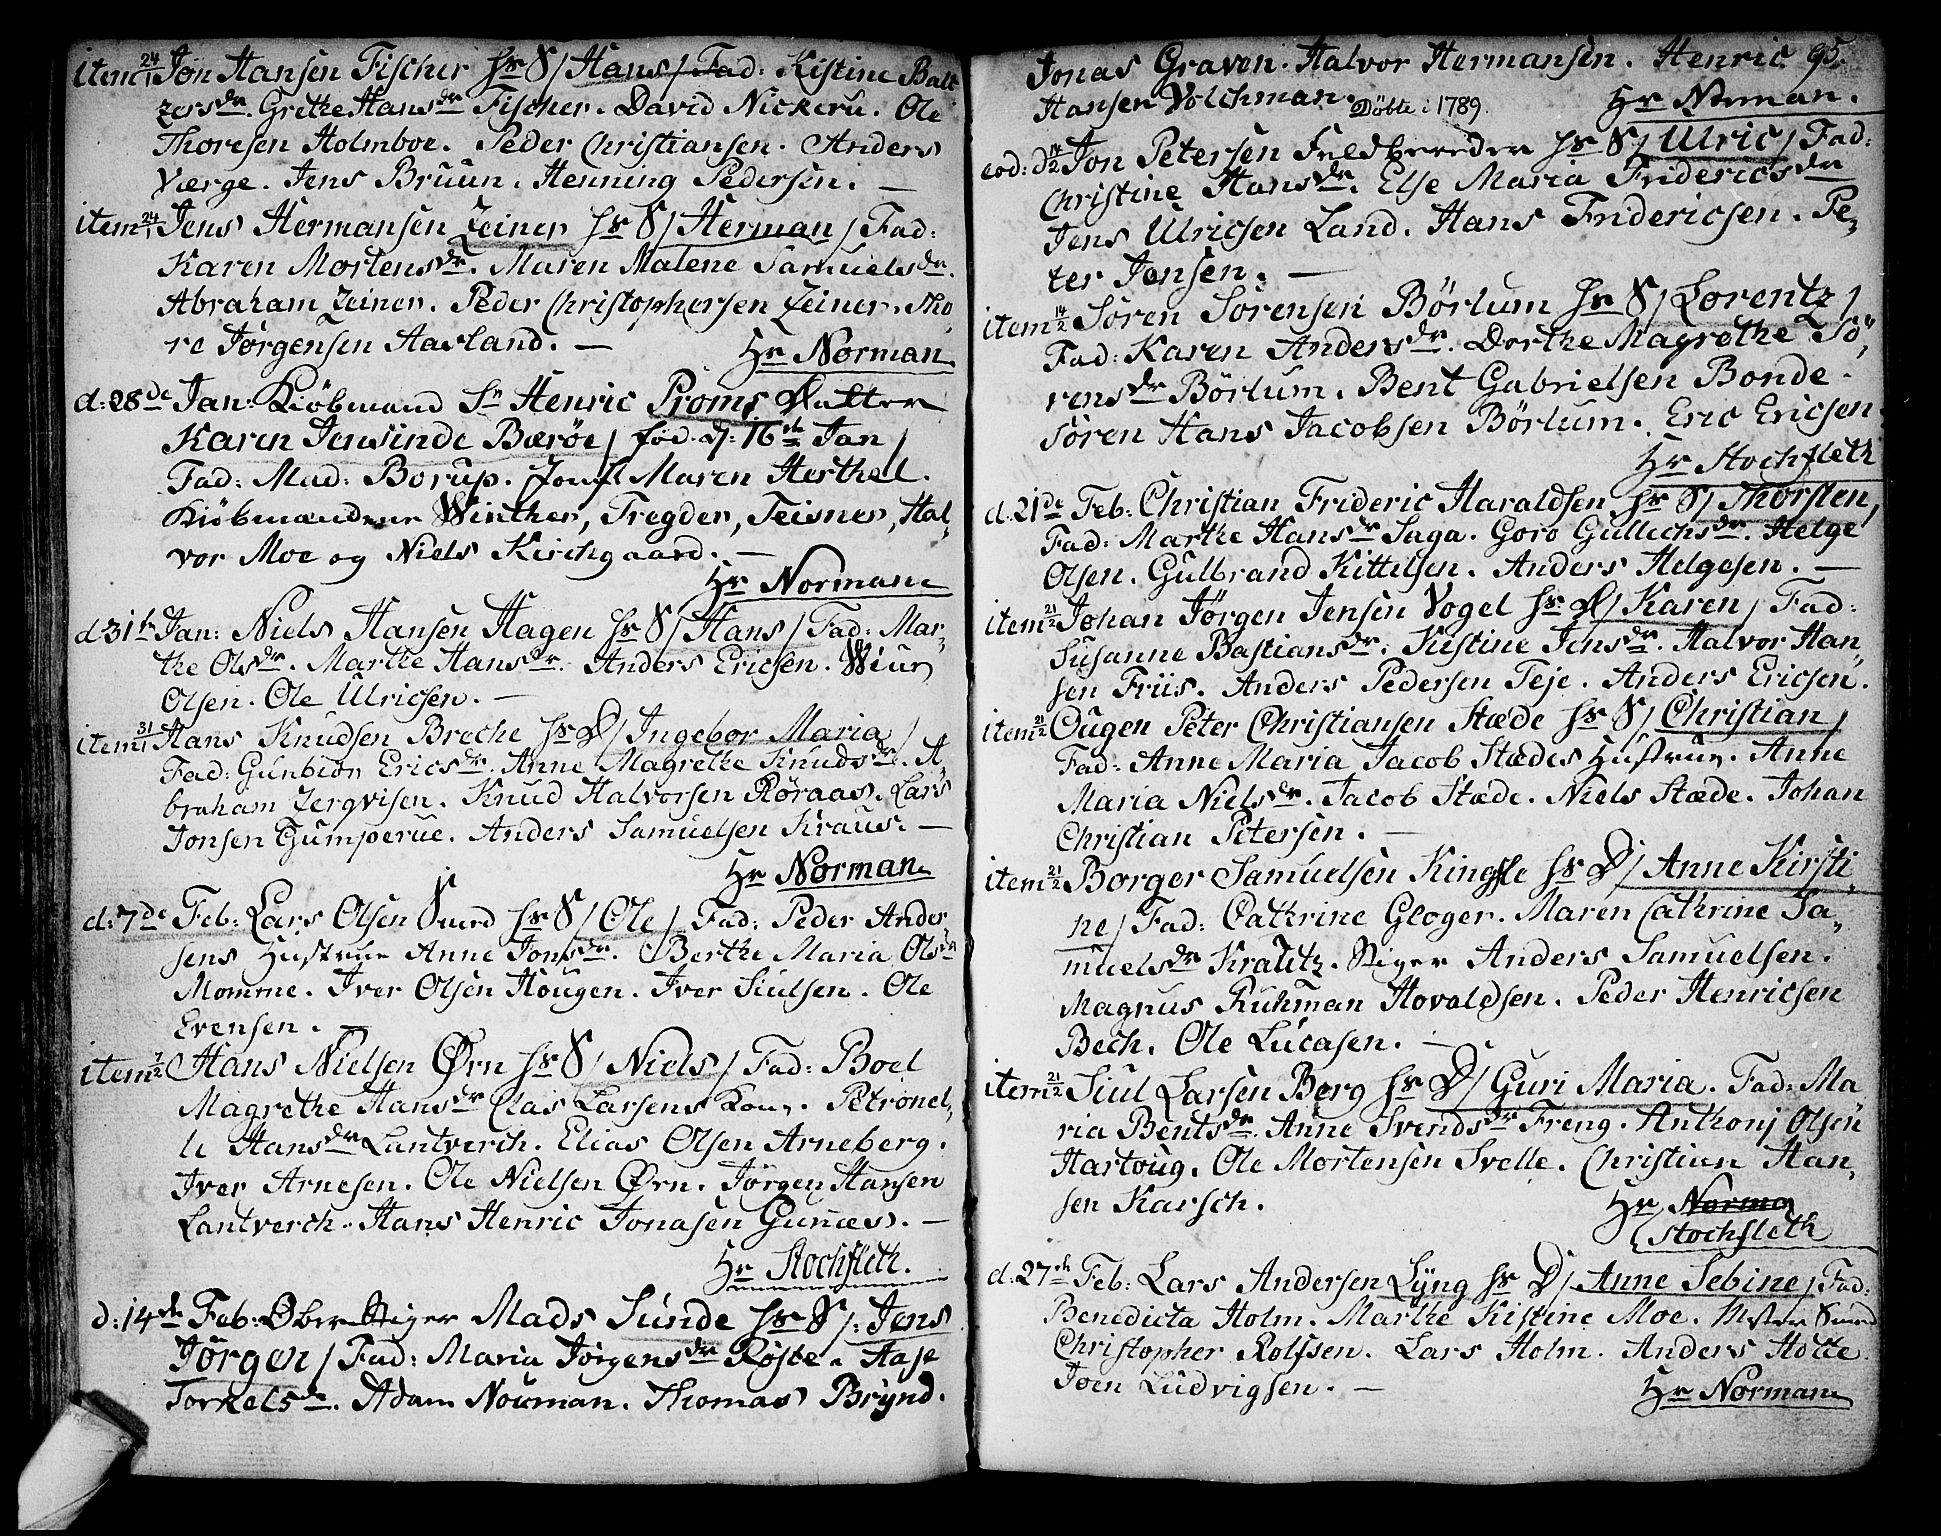 item 24/1 Jon Hansen Fischer hs S/ Hans / Fad: Kistine Balt
zersdr. Grethe Hansdr Fischer. David Nickeru. Ole
Thoresen Holmboe. Peder Christiansen. Anders
Værge. Jens Bruun. Henning Pedersen. —
item 24/1 Jens Hermansen Zeiner hs S/ Herman / Fad:
Karen Mortensdr. Maren Malene Samuelsdr.
Abraham Zeiner. Peder Christophersen Zeiner. Tho,,
re Jørgensen Aasland. —
Hr Norman
d: 28de Jan: Kiøbmand Sr Henric Proms Datter
Karen Jensinde Bærøe / fød d: 16de Jan /
Fad: Mad: Borup. Jomf Maren Hesthel.
Kiøbmændene Winther, Tregder, Teisner, Hal,,
vor Moe og Niels Kirchgaard. —
Hr Norman
d 31te Jan: Niels Hansen Hagen hs S/ Hans / Fad: Mar,,
the Olsdr. Marthe Hansdr. Anders Ericsen. Wiur
Olsen. Ole Ulricsen. —
item 31/1 Hans Knudsen Breche hs D/ Ingebor Maria /
Fad: Gunbiør Ericsdr. Anne Magrethe Knudsdr. A,,
braham Zergvisen. Knud Halvorsen Røraas. Lars
Jonsen Gumperue. Anders Samuelsen Kraus. —
Hr Norman
d: 7de Feb: Lars Olsen Suerd hs S/ Ole / Fad: Peder Ander,,
sens Hustrue Anne Jonsdr. Berthe Maria Olsdr
Momme. Iver Olsen Hougen. Iver Siulsen. Ole
Evensen. —
item 7/2 Hans Nielsen Ørn hs S/ Niels / Fad: Boel
Magrethe Hansdr Clas Larsens Kone. Petronel,,
le Hansdr Lantverch. Elias Olsen Arneberg.
Iver Arnesen. Ole Nielsen Ørn. Jørgen Hansen
Lantverch. Hans Henric Jonasen Gunæs. —
Hr Stochfleth.
d: 14de Feb: Ober Stiger Mads Sunde hs S/: Jens
Jørgen / Fad: Maria Jørgensdr Røste. Aase
Torkelsdr. Adam Nouman. Thomas Brynd.
Jonas Graven. Halvor Hermansen. Henric 95.
Hansen Volchman. Døbte i 1789. Hr Norman.
eod: d 14/2 Jon Petersen Feldbereeder hs S/ Ulric / Fad:
Christine Hansdr. Else Maria Fridericsdr
Jens Ulricsen Land. Hans Fridericsen. Pe,,
ter Jensen. —
item 14/2 Søren Sørensen Børlum hs S/ Lorentz /
Fad: Karen Andersdr. Dorthe Magrethe Sø,,
rensdr Børlum. Bent Gabrielsen Bonde.
Søren Hans Jacobsen Børlum. Eric Ericsen.
Hr Stochfleth
d. 21de Feb: Christian Frideric Haraldsen hs S/ Thorsten /
Fad: Marthe Hansdr Saga. Goro Gullichsdr. Helge
Olsen. Gulbrand Kittelsen. Anders Helgesen. —
item 21/2 Johan Jørgen Jensen Vogel hs D/ Karen / Fad:
Susanne Bastiansdr. Kistine Jensdr. Halvor Han,,
sen Friis. Anders Pedersen Teje. Anders Ericsen.
item 21/2 Ougen Peter Christiansen Stæde hs S/ Christian /
Fad: Anne Maria Jacob Stædes Hustrue. Anne
Maria Nielsdr. Jacob Stæde. Niels Stæde. Johan
Christian Petersen. —
item 21/2 Borger Samuelsen Kingsle hs D/ Anne Kirsti,,
ne / Fad: Cathrine Gloger. Maren Cathrine Sa,,
muelsdr Kralitz. Stiger Anders Samuelsen.
Magnus Ruhman Hovaldsen. Peder Henricsen
Bech. Ole Lucasen. —
item 21/2 Siul Larsen Berg hs D/ Guri Maria. Fad: Ma
ria Bentsdr. Anne Svendsdr Freng. Anthonj Olsen
Hartoug. Ole Mortensen Svelle. Christian Han,,
sen Karsch.
Hr Norma
Stochfleth
d: 27de Feb: Lars Andersen Lyng hs D/ Anne Sebine / Fad:
Benedicta Holm. Marthe Kistine Moe. Mster Smed
Christopher Rolfsen. Lars Holm. Anders Hotte.
Joen Ludvigsen. —
Hr Norman